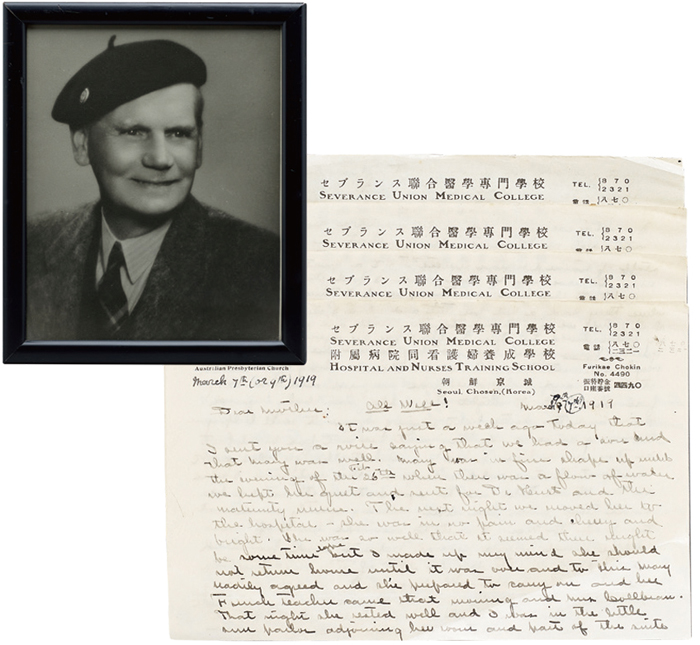 セブランス聯合醫學專門學校
SEVERANCE UNION MEDICAL COLLEGE
TEL. 870
2321
電話 八七〇
セブランス聯合醫學專門學校
SEVERANCE UNION MEDICAL COLLEGE
TEL. 870
2321
電話 八七〇
セブランス聯合醫學專門學校
SEVERANCE UNION MEDICAL COLLEGE
TEL. 870
2321
電話 八七〇
セブランス聯合醫學專門學校
SEVERANCE UNION MEDICAL COLLEGE
附屬病院同看護婦養成學校
HOSPITAL AND NURSES TRAINING SCHOOL
朝鮮京城
Seoul, Chosen, (Korea)
TEL. 870
2321
電話 八七〇
二三二一
Furikae Chokin
No. 4490
振替貯金
口座番號 四四九〇
Australian Presbyterian Church
March 7th (or 4th) 1919
March 1919
Dear Mother; All Well!
It was just a week ago today that
I sent you a wire saying that we had a son and
that Mary was well. Mary was in fine shape up until
the evening of the 26th when there was a flow of water
we kept her quiet and sent for Dr and the
maternity nurse. The next night we moved her to
the hospital - she was in no pain and and
bright. She was so well that it seemed that might
be some time but I made up my mind she should
not return home until it was over and to this Mary
readily agreed and she prepared to carry on and her
French teacher came that morning and Mrs
That night she rested well and I was in the little
sun parlor adjoining her room and part of the suite